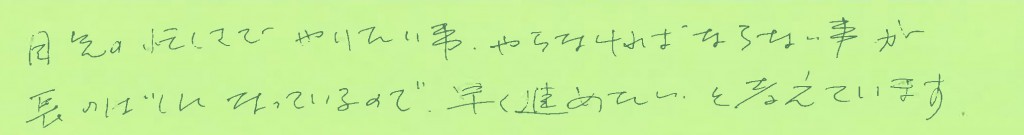 目先の忙しさで やりたい事、やらなければならない事が
長のばしに なっているので、早く進めたい、と考えています。